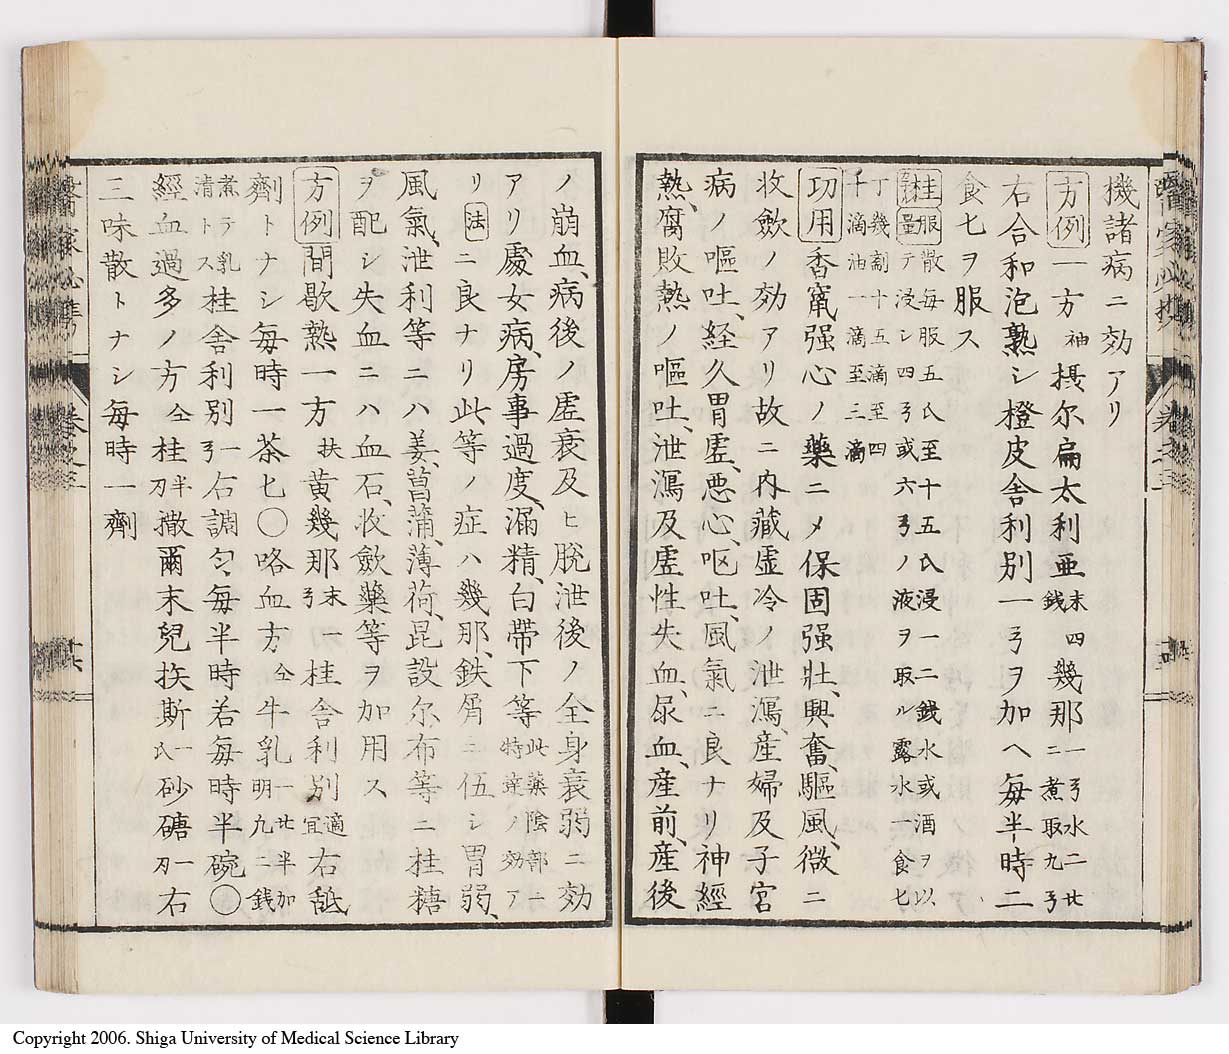 機諸病ニ効アリ
方例 一方 袖 摂尓扁太利亜 末四銭 幾那 一弓水二廿ニ煮取九弓
右合和泡熟シ橙皮舎利別一弓ヲ加ヘ毎半時二
食匕ヲ服ス
桂 服量 散毎服五氏至十五氏浸一二銭水或酒ヲ以テ浸シ四弓或六弓ノ液ヲ取ル露水一食匕
丁幾割十五滴至四
千滴油一滴至三滴
功用 香竄强心ノ藥ニメ保固强壮、興奮、驅風、微ニ
收歛ノ効アリ故ニ内藏虚冷ノ泄瀉、産婦及子宮
病ノ嘔吐、経久胃虚、悪心、嘔吐、風氣ニ良ナリ神經
熱、腐敗熱ノ嘔吐、泄瀉及虚性失血、尿血、産前、産後
ノ崩血、病後ノ虚衰及ヒ脱泄後ノ全身衰弱ニ効
アリ處女病、房事過度、漏精、白帯下等 此藥陰部ニ特達ノ効ア
リ 法 ニ良ナリ此等ノ症ハ幾那、鉄屑ニ伍シ胃弱、
風氣、泄利等ニハ姜、菖蒲、薄荷、昆設尓布等ニ桂糖
ヲ配シ失血ニハ血石、收歛藥等ヲ加用ス
方例 間歇熱一方 扶 黄幾那 末一弓 桂舎利別 適宜 右舐
劑トナシ毎時一茶匕〇咯血方 仝 牛乳 一廿半加明九二銭
煮テ乳清トス 桂舎利別 一弓 右調匀毎半時若毎時半碗〇
經血過多ノ方 仝 桂 半刃 撒爾末兒挨斯 一氏 砂磄 一刃 右
三味散トナシ毎時一劑